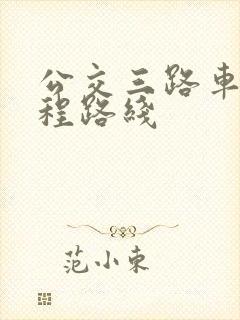 公交三路車
程路綫
范小東